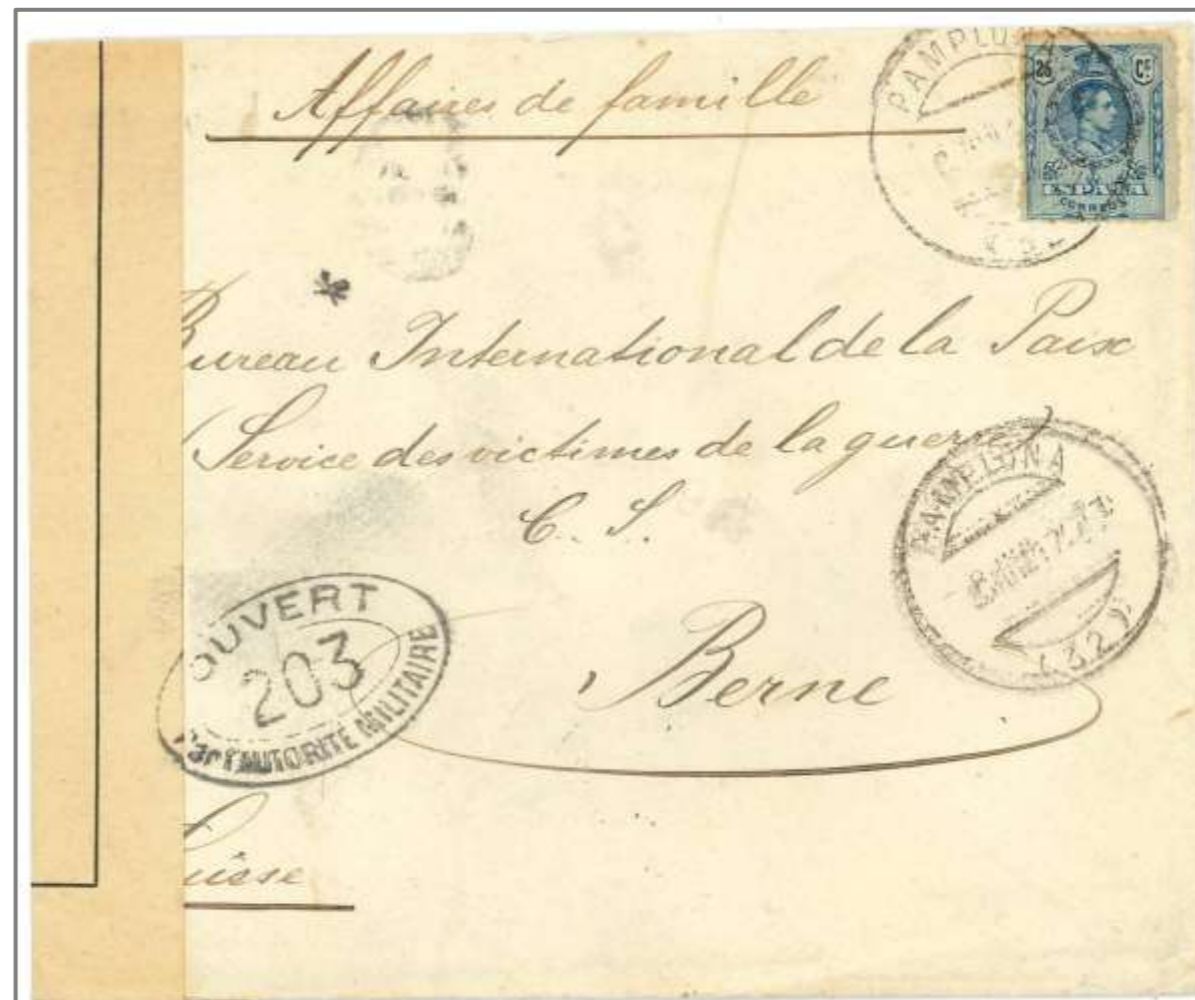 Affaires de famille
PAMPLONA
25 Cs
ESPAÑA
CORREOS
Bureau International de la Paix
(Service des victimes de la guerre)
C. S.
PAMPLONA
(32)
OUVERT
203
Par l'AUTORITÉ MILITAIRE
Berne
Suisse